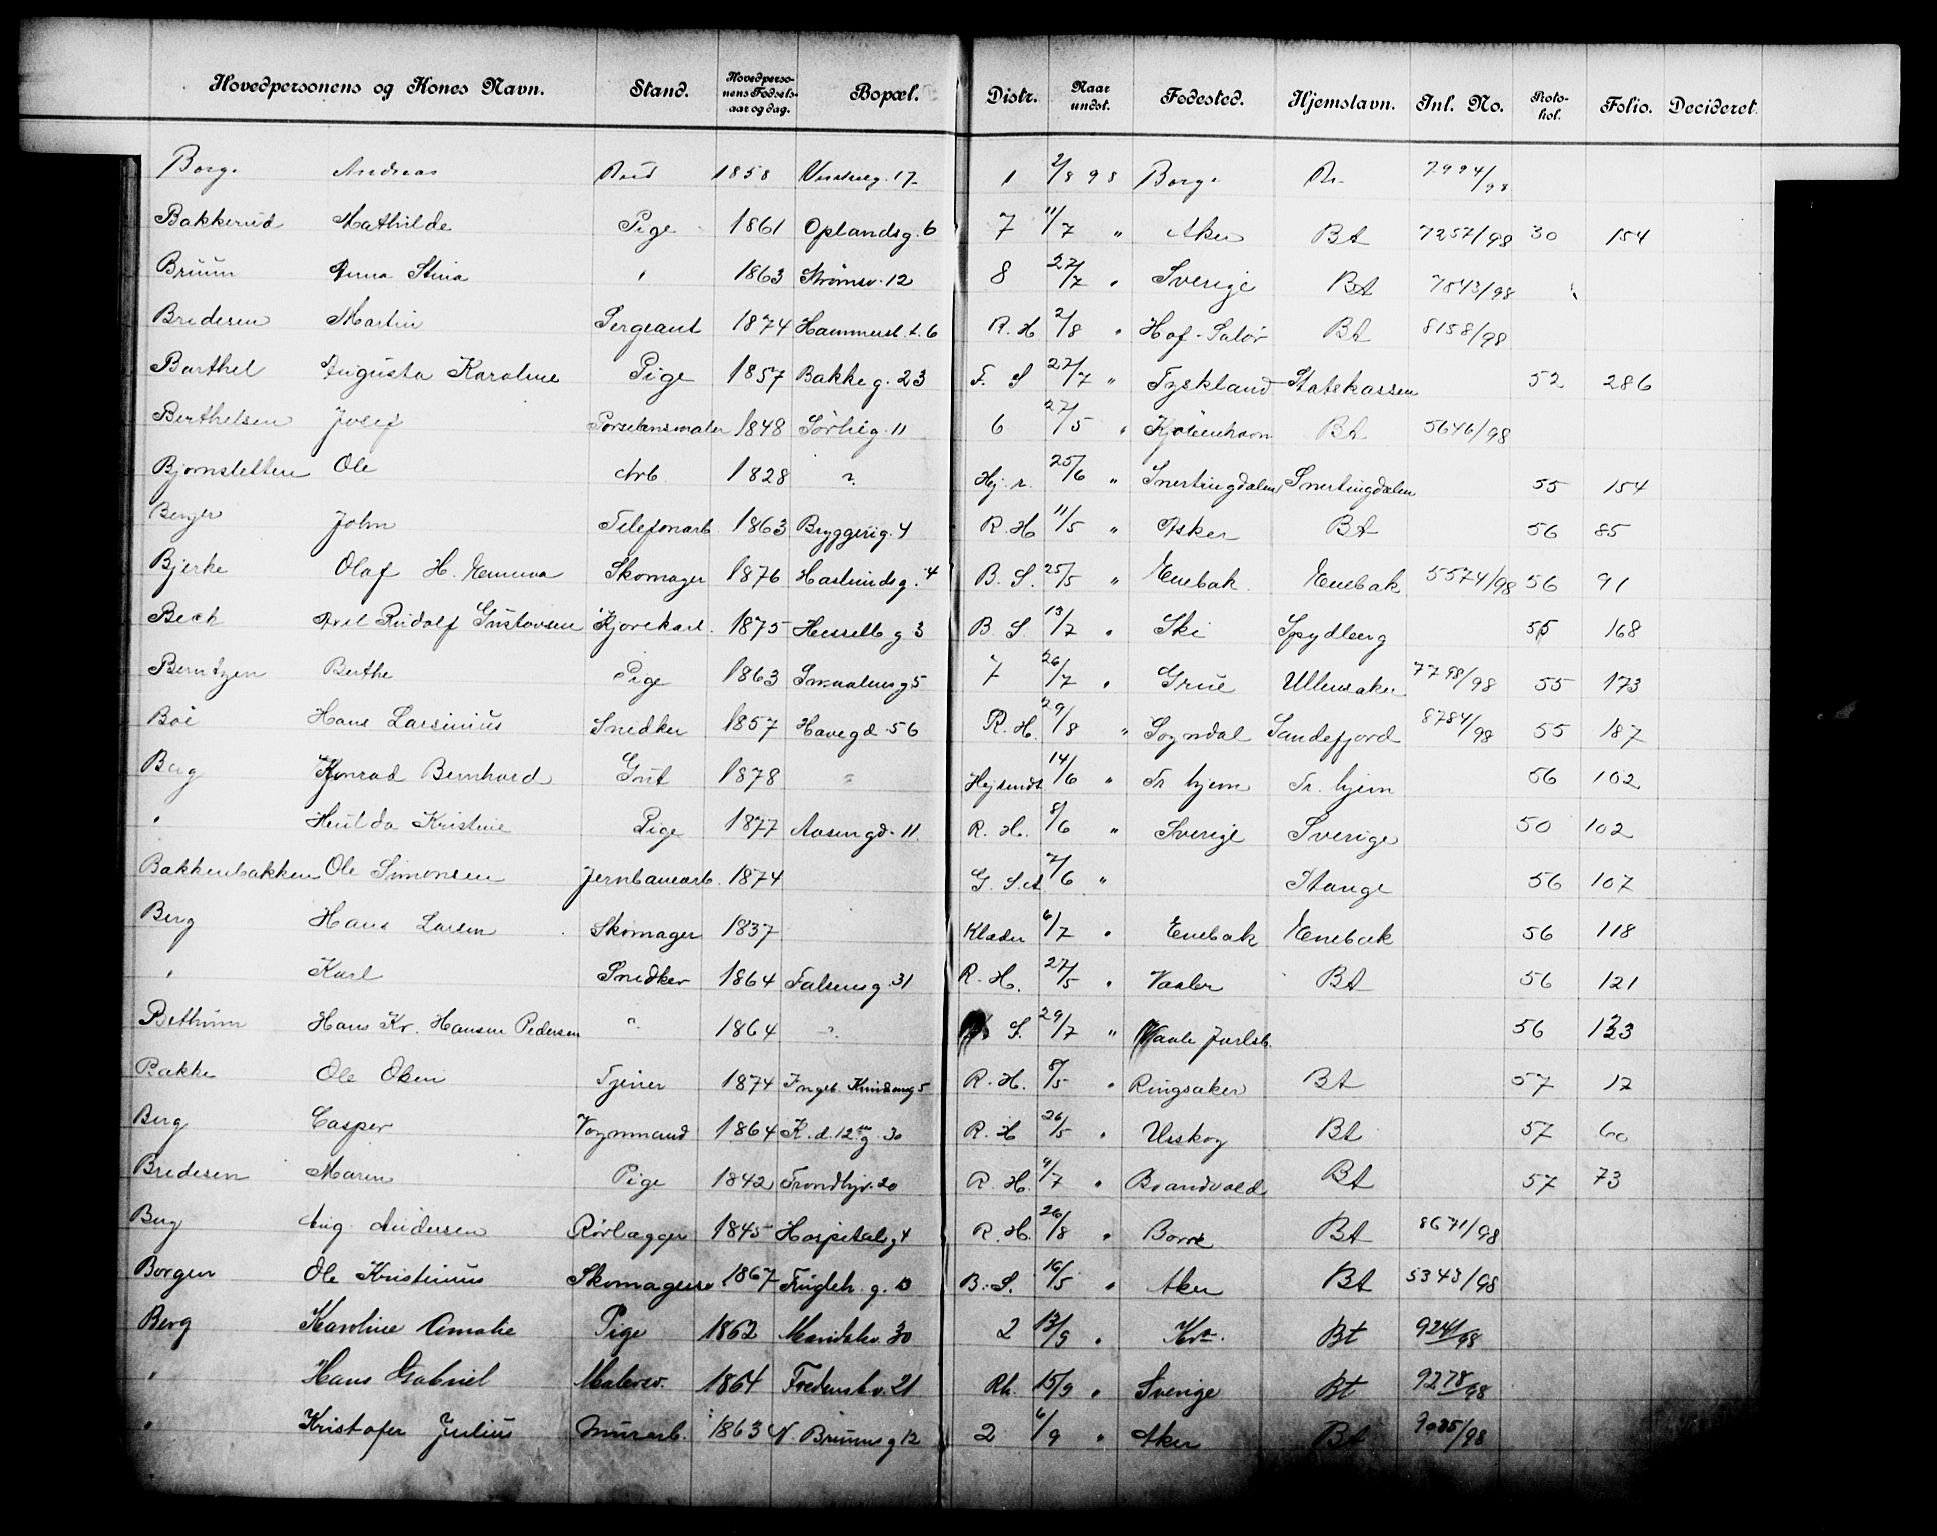 Hovedpersonens og Kones Navn. Stand. Hovedpersonens Fødselsaar og dag. Bopæl. Distr. Naar undst. Fødested. Hjemstavn. Inl. No. Protokol. Folio. Decideret.
Borge Andreas Bud 1858 17 1 2/8 98 Borge 7994/98
Bakkerud Mathilde Pige 1861 Oplandsg. 6 7 11/7 " Aker Bt 7257/98 30 154
Bruun Anna Stina " 1863 Strömsv. 12 8 27/7 " Sverige Bt 7843/98
Bredesen Martin Sergeant 1874 Hammerst. t. 6 R. H 2/8 " Hof - Solör Bt 8158/98
Barthel Augusta Karoline Pige 1857 Bakkeg. 23 F. S 27/7 " Tyskland Statskassen 52 286
Berthelsen Josef Porselensmaler 1848 Sörlig. 11 6 27/5 " Kjöbenhavn Bt 5646/98
Bjornstetten Ole Arb 1828 ? Hj. r. 25/6 " Snertingdalen Snertingdalen 55 154
Berger John Telefonarb. 1863 Bryggerig. 4 R. H 11/5 " Asker Bt 56 85
Bjerke Olaf H. Emma Skomager 1876 Haslundsg. 4 B. S. 25/5 " Enebak. Enebak 5574/98 56 91
Bech Axel Rudolf Gustavsen Kjörekarl. 1875 Hesselb g 3 B. S. 13/7 " Ski Spydberg 55 168
Berntzen Berthe Pige 1863 Smaalensg 5 7 26/7 " Grue Ullensaker 7798/98 55 173
Boe Hans Larsinius Snedker 1857 Havegd. 56 R. H. 29/8 " Sogndal Sandefjord 8784/98 55 187
Berg Konrad Bernhard Gut 1878 " Hejsendt 14/6 " Tr hjem Tr. hjem 56 102
" Hulda Kristine Pige 1877 Aasengd. 11. R. H. 8/6 " Sverige Sverige 50 102
Bakkenbakken Ole Simonsen Jernbanearb. 1874 G. S. 7/6 " Stange 56 107
Berg Hans Larsen Skomager 1837 Klæder 6/7 " Enebak Enebak 56 118
" Karl Snedker 1864 Falsensg. 31 R. H. 27/5 " Vaaler Bt 56 121
Bethum Hans Kr. Hansen Pedersen ? 1864 ? S. 29/7 " Vaale Jarlsb. 56 133
Bakke Ole Olsen Tjener 1874 Ingeb. 5 R. H. 8/5 " Ringsaker Bt 57 17
Berg Casper Vognmand 1864 K. d. 12tes g. 30 R. H 26/5 " Urskog Bt 57 60
Bredesen Maren Pige 1842 Trondhjv. 20 R. H. 9/7 " Brandvold Bt 57 73
Berg Aug. Andersen Rörlægger 1845 Hospitalsg 4 R. H. 26/8 " Borre Bt 8671/98
Borgen Ole Kristinius Skomagersv 1867 Fugleh. g. 13 B. S. 16/5 " Aker Bt 5343/98
Berg Karoline Amalie Pige 1862 Maridalsv. 30 2 13/9 " Kra. Bt 9241/98
" Hans Gabriel Malersv. 1864 Fredensb v. 21 Rh. 15/9 " Sverige Bt 9278/98
" Kristofer Julius Murarb. 1863 N. Bruunsg 12 2 6/9 " Aker Bt 9085/98